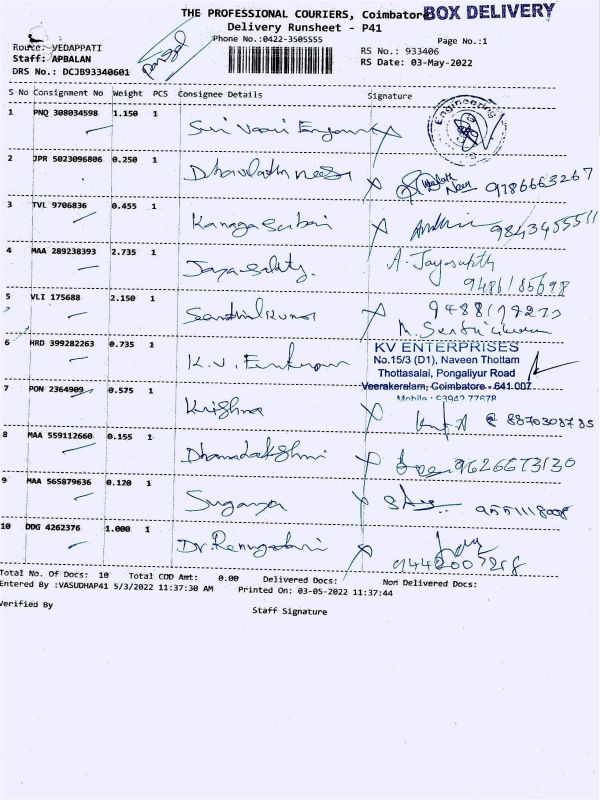 THE PROFESSIONAL COURIERS, Coimbatore BOX DELIVERY
Delivery Runsheet - P41
Phone No.:0422-3505555 Page No.:1
Route: VEDAPPATI RS No.: 933406
Staff: APBALAN RS Date: 03-May-2022
DRS No.: DCJB93340601
S No Consignment No Weight PCS Consignee Details Signature
1 PNQ 308034598 1.150 1 Engineering
2 JPR 5023096806 0.250 1 9786663267
3 TVL 9706836 0.455 1 9843455511
4 MAA 289238393 2.735 1 A. Jayasakthi
9486185698
5 VLI 175688 2.150 1 Senthilkumar
M. Senthilkumar
6 HRD 399282263 0.735 1 K.V. KV ENTERPRISES
No.15/3 (D1), Naveen Thottam
Thottasalai, Pongaliyur Road
Veerakeralam, Coimbatore - 641 007
Mobile : 93942 77678
7 PON 2364909 0.575 1 Krishna 8870308785
8 MAA 559112660 0.155 1 Dhanalakshmi 9626673130
9 MAA 565879636 0.120 1 Suganya 9551118008
10 DDG 4262376 1.000 1 Dr. Renugadevi
9442007258
Total No. Of Docs: 10 Total COD Amt: 0.00 Delivered Docs: Non Delivered Docs:
Entered By :VASUDHAP41 5/3/2022 11:37:30 AM Printed On: 03-05-2022 11:37:44
Verified By Staff Signature